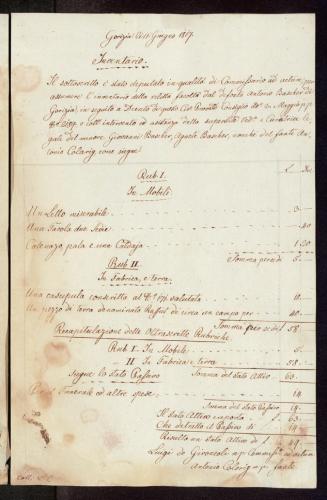 Gorizia li 11 Giugno 1817.
Inventario.
Il sottoscritto è stato deputato in qualità di Commissario ad actum per
assumere l'inventario della facoltà del defonto Antonio Bascber di
Gorizia, in seguito a Decreto di questo Ces. Consiglio di Maggio p.p.
coll'intervento ed assistenza della superstite Ved.a e Curatrice le-
gale del minore Giovanni Bascber, Agnese Bascber, nonche del fante An-
tonio Colarig come segue
Rub I.
In Mobili.
Un Letto miserabile 3.
Una Tavola due Sedie 40
Catenazo, pala e una Caldaja 1 20
Somma per di 5.
Rub II.
In Fabrica, e terra.
Una casupula conscritta al N° valutata 18.
Un pezzo di terra denominato di circa un campo per 40.
Somma per se di f 58
Recapitulazione delle Oltrascritte Rubriche.
Rub I. In Mobili 5.
II. In Fabrica e terra 58.
Somma del Stato Attivo 63.
Segue lo Stato Passivo
Funerale ed altre spese 14
Somma del Stato Passivo 14
Il Stato Attivo importa f 63
Che detratto il Passivo di 14
Risulta un Stato Attivo di f 49
Luigi de Gironcoli mp Commiss. ad actum
Antonio Colorig mp fante